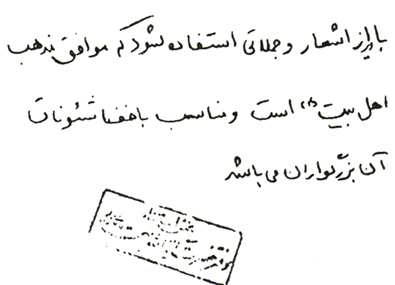 باید از اشعار و جملاتی استفاده شود که موافق مذهب
اهل بیت (ع) است و مناسب با حفظ شئونات
آن بزرگواران می باشد